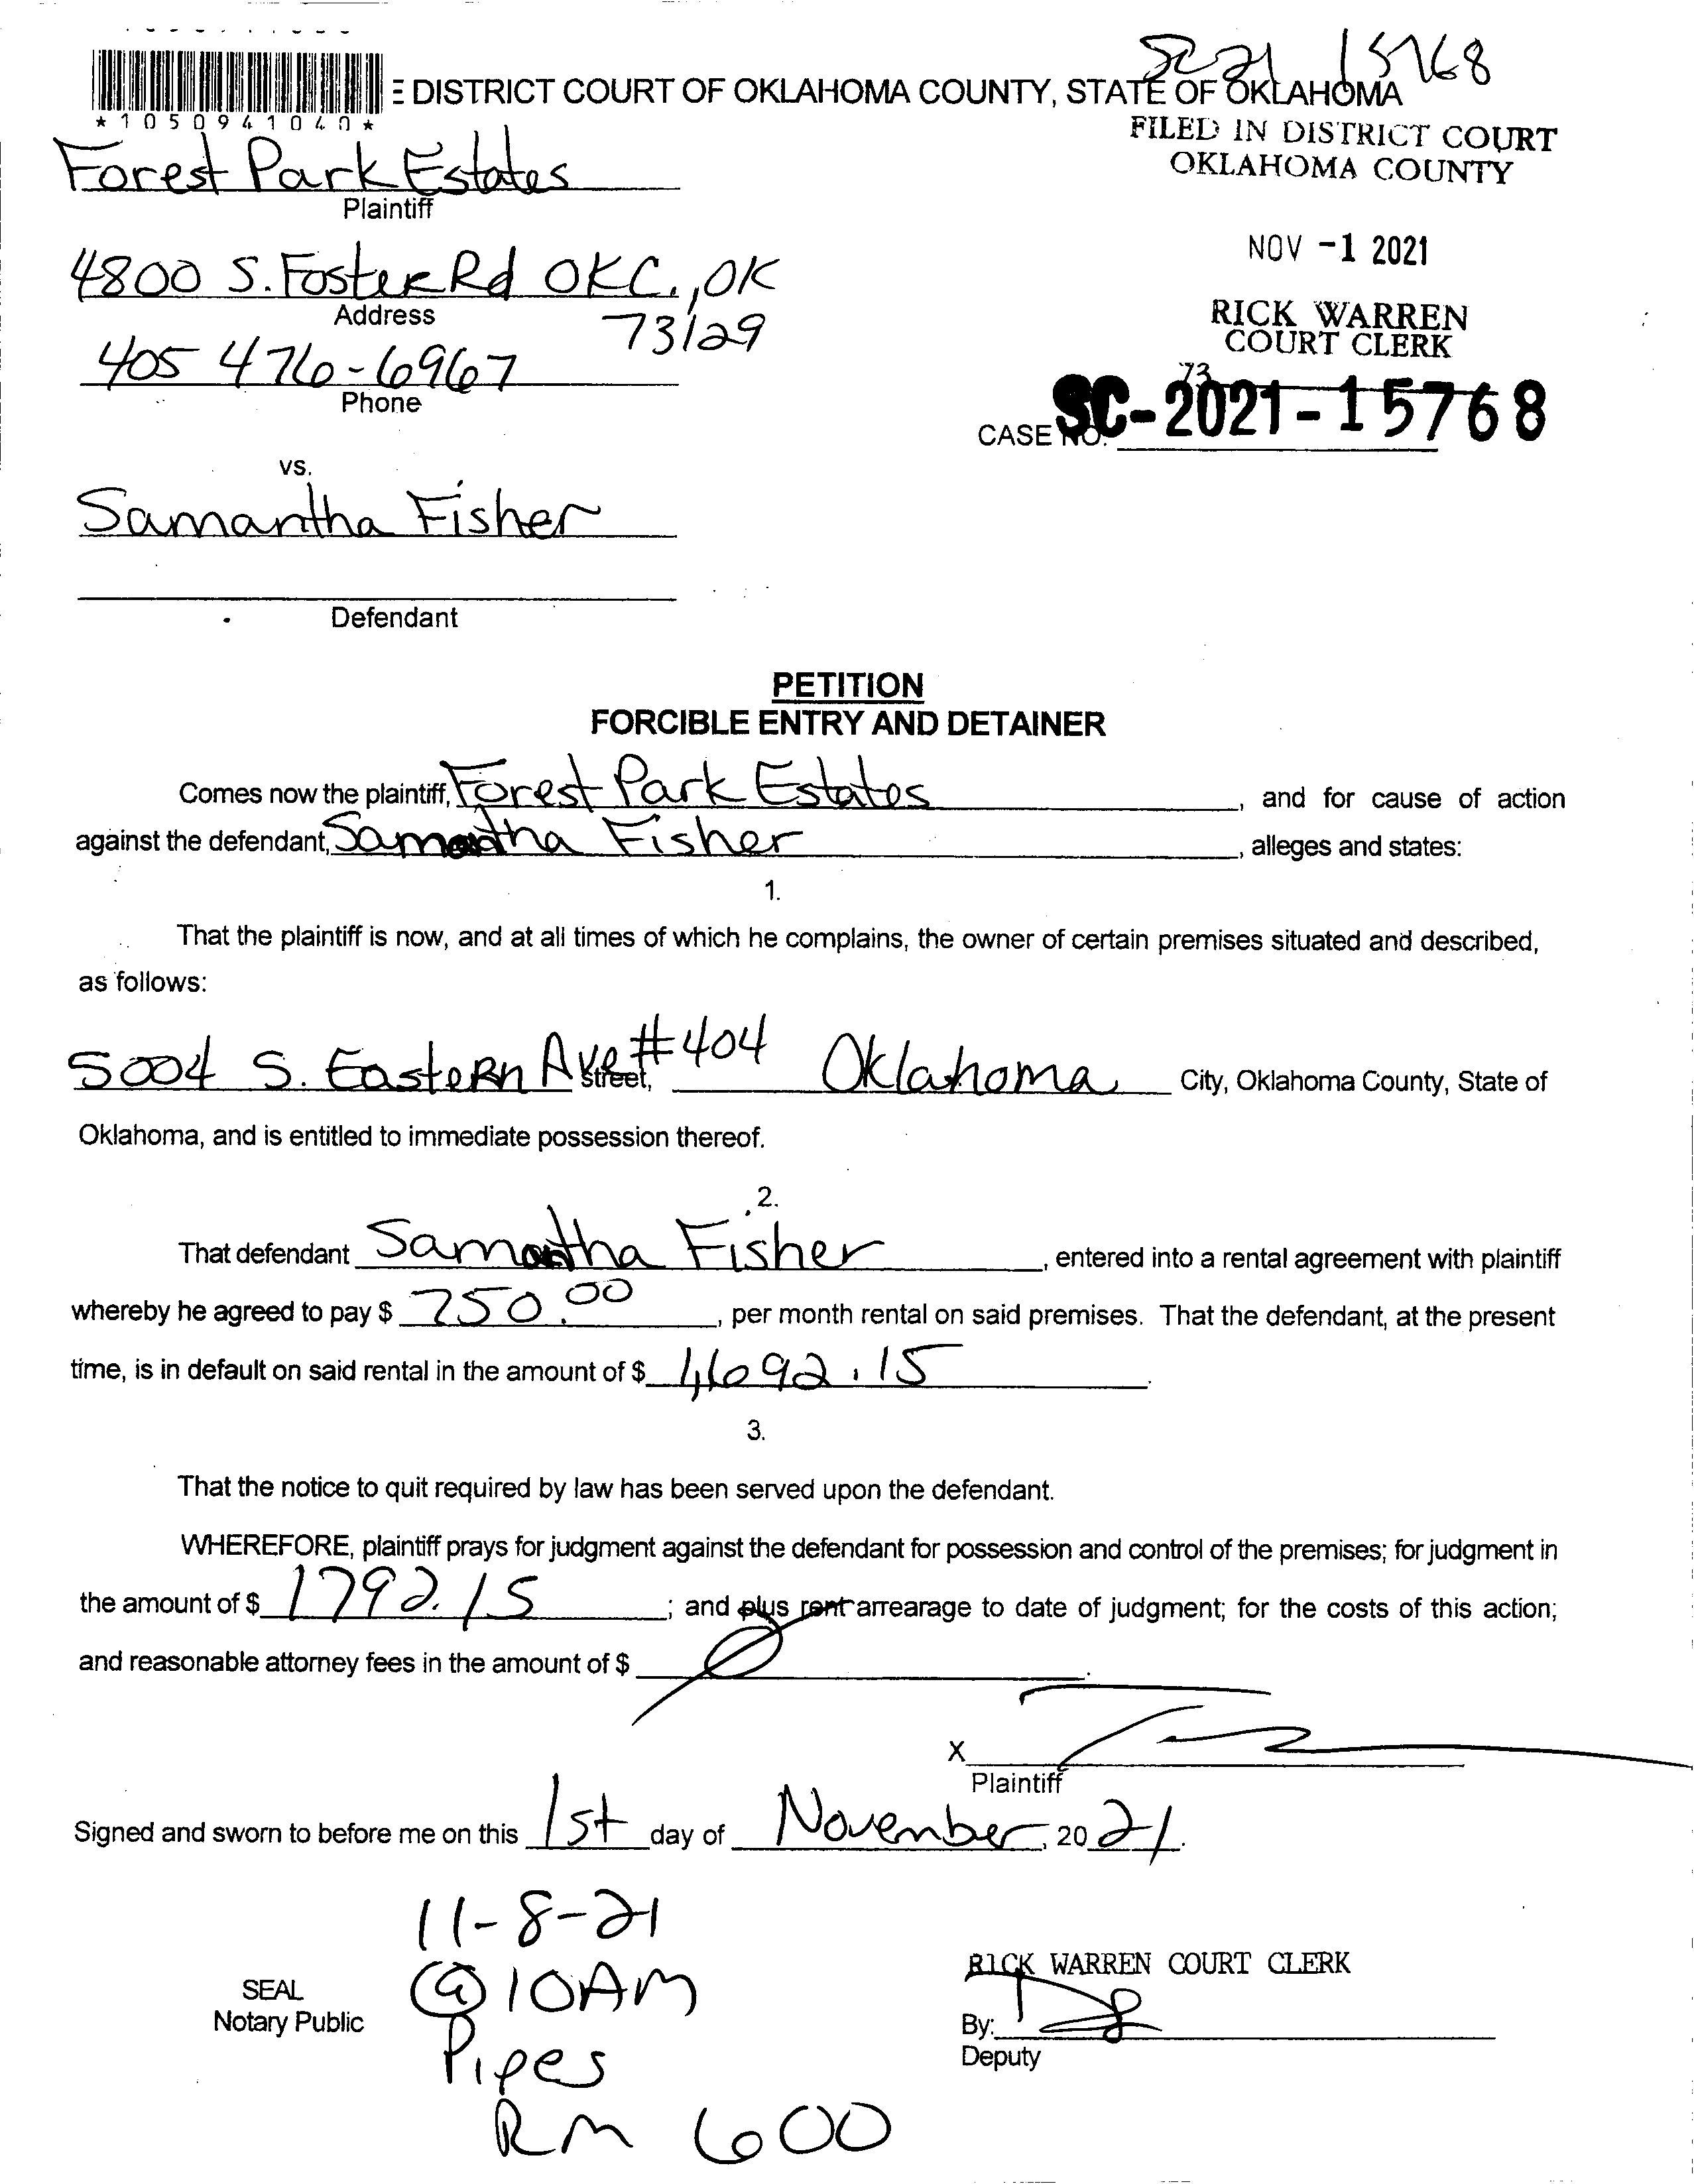 SC 21 15768
*1050941040*
E DISTRICT COURT OF OKLAHOMA COUNTY, STATE OF OKLAHOMA
FILED IN DISTRICT COURT
OKLAHOMA COUNTY
Forest Park Estates
Plaintiff
NOV -1 2021
4800 S. Foster Rd OKC., OK
Address
73129
RICK WARREN
COURT CLERK
405 476-6967
Phone
73
CASE NO. SC-2021-15768
vs.
Samantha Fisher
Defendant
PETITION
FORCIBLE ENTRY AND DETAINER
Comes now the plaintiff, Forest Park Estates, and for cause of action
against the defendant, Samantha Fisher, alleges and states:
1.
That the plaintiff is now, and at all times of which he complains, the owner of certain premises situated and described,
as follows:
5004 S. Eastern Ave #404 Street, Oklahoma City, Oklahoma County, State of
Oklahoma, and is entitled to immediate possession thereof.
2.
That defendant Samantha Fisher, entered into a rental agreement with plaintiff
whereby he agreed to pay $ 750.00, per month rental on said premises. That the defendant, at the present
time, is in default on said rental in the amount of $ 1,692.15.
3.
That the notice to quit required by law has been served upon the defendant.
WHEREFORE, plaintiff prays for judgment against the defendant for possession and control of the premises; for judgment in
the amount of $ 1792.15; and plus rent arrearage to date of judgment; for the costs of this action;
and reasonable attorney fees in the amount of $ 0.
X
Plaintiff
Signed and sworn to before me on this 1st day of November, 2021.
11-8-21
@ 10AM
Pipes
RM 600
SEAL
Notary Public
RICK WARREN COURT CLERK
By:
Deputy